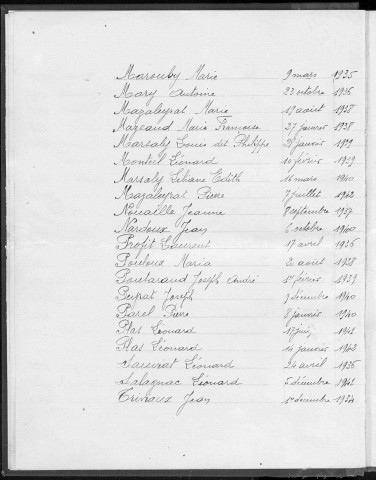 Marouby Marie 9 mars 1935
Mary Antoine 23 octobre 1936
Mazaleyrat Marie 19 aout 1938
Mazeaud Marie Françoise 27 janvier 1938
Marsaly Louis dit Philippe 21 janvier 1939
Monteil Léonard 10 février 1939
Marsaly Liliane Edith 16 mars 1940
Mazaleyrat Pierre 7 juillet 1942
Nouaille Jeanne 8 septembre 1937
Nardoux Jean 6 octobre 1940
Profit Laurent 17 avril 1936
Pouloux Maria 2 aout 1938
Poutaraud Joseph André 1er février 1939
Peyrat Joseph 9 décembre 1940
Parel Pierre 8 janvier 1940
Plas Léonard 17 juin 1942
Plas Léonard 14 janvier 1942
Sauviat Léonard 24 avril 1936
Salagnac Léonard 5 décembre 1942
Triviaux Jean 1er décembre 1934